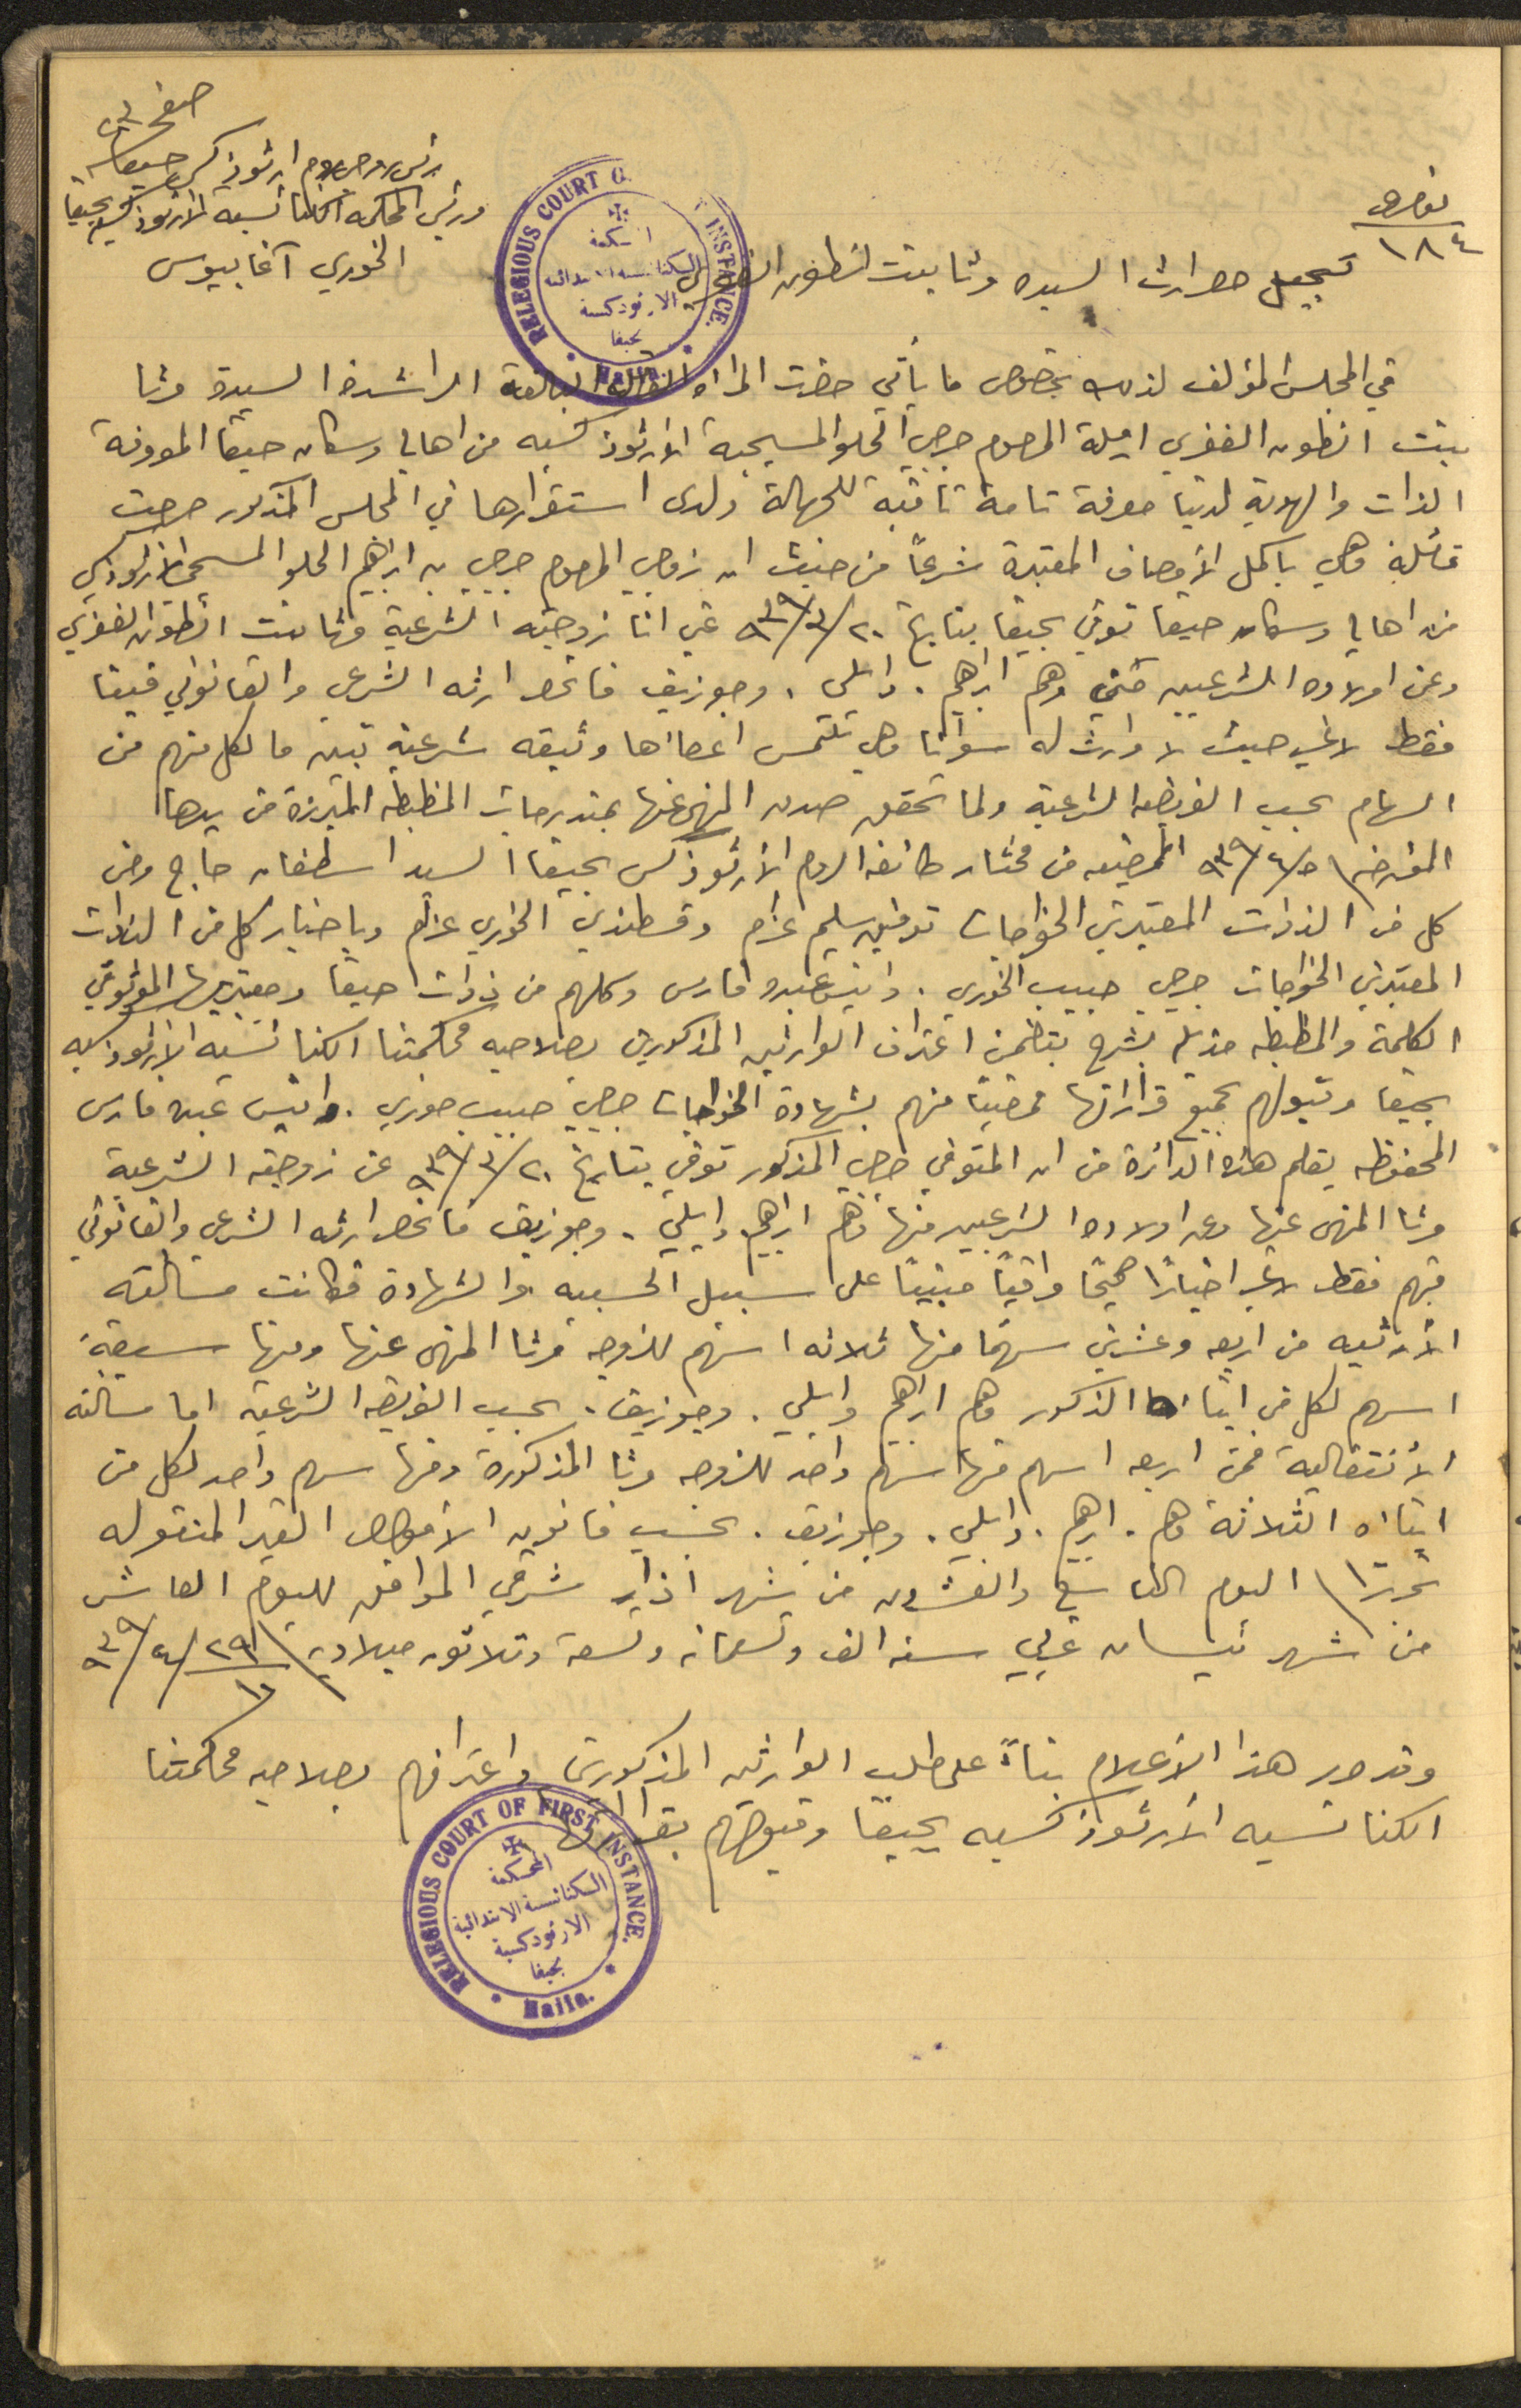 صفحة
رئيس روحي روم ارثوذكس حيفا
ورئيس المحكمة الكنائسية الارثوذكسية بحيفا
الخوري آغابيوس
نومرو
١٨٤
تسجيل حصر ارث السيده وثا بنت انطون الغفري
RELEGIOUS COURT O INSTANCE.
المحكمة
الكنائسية الابتدائية
الارثوذكسية
بحيفا
Haifa.
في المجلس المؤلف لذلك بخصوص ما يأتي حضرت المراه العاقلة البالغة الراشدة السيدة وثا
بنت انطون الغفري ارملة المرحوم جرجي الحلو المسيحية الارثوذكسيه من اهالي وسكان حيفا المعروفة
الذات والهوية لدينا معرفة تامة نافية للجهالة ولدى استقرارها في المجلس المذكور صرحت
قائلة وهي باكمل الأوصاف المعتبرة شرعاً من حيث ان زوجي المرحوم جرجي بن ابراهيم الحلو المسيحي الارثوذكسي
من اهالي وسكان حيفا توفي بحيفا بتاريخ ٢٠/٣/٩٣٩ عني انا زوجته الشرعية وثا بنت انطون الغفري
وعن اولاده الشرعيين مني وهم ابراهيم . وايلي . وجوزيف فانحصر ارثه الشرعي والقانوني فينا
فقط لا غير حيث لا وارث له سوانا وهي تلتمس اعطاءها وثيقه شرعية تبين ما لكل منهم من
السهام بحسب الفريضه الشرعية ولما تحقق صدق المنهى عنها بمندرجات المظبطه المبرزة من يدها
المؤرخه ٥/٤/٩٣٩ الممضيه من مختار طائفة الروم الأرثوذكس بحيفا السيد اسطفان حاج ومن
كل من الذوات المعتبرين الخواجات توفيق سليم عزام وقسطندي الخوري عزام وباخبار كل من الذوات
المعتبرين الخواجات جرجي حبيب الخوري . وانيس عبده فارس وكلهم من ذوات حيفا ومعتبريها الموثوقي
الكلمة والمظبطه مذيله بشرح يتظمن اعتراف الوارثين المذكورين بصلاحيه محكمتنا الكنائسيه الارثوذكسيه
بحيفا وقبولهم بجميع قراراتها ممضيًا منهم بشهادة الخواجات جرجي حبيب خوري . وانيس عبده فارس
المحفوظه بقلم هذه الدائرة من ان المتوفي جرجي المذكور توفي بتاريخ ٢٠/٣/٩٣٩ عن زوجته الشرعية
وثا المنهى عنها وعن اولاده الشرعيين منها وهم ابراهيم وايلي . وجوزيف فانحصر ارثه الشرعي والقانوني
فيهم فقط لا غير اخبارًا صحيحًا وافيًا مبنيًا على سبيل الحسبيه والشهادة فكانت مسألته
الأرثيه من اربعه وعشرين سهمًا منها ثلاثه اسهم للزوجه وثا المنهى عنها ومنها سبعة
اسهم لكل من ابنائه الذكور وهم ابراهيم وايلي . وجوزيف . بحسب الفريضه الشرعية اما مسألته
الأنتقالية فمن اربعه اسهم منها سهم واحد للزوجه وثا المذكورة ومنها سهم واحد لكل من
ابنائه الثلاثة وهم . ابراهيم . وايلي . وجوزيف . بحسب قانون الأموال الغير المنقوله
تحريرًا اليوم التاسع والعشرون من شهر اذار شرقي الموافق لليوم الحادي عشر
من شهر نيسان غربي سنه الف وتسعمائه وتسعة وثلاثون ميلاديه ٢٩/٤/٩٣٩
وقد صدر هذا الاعلام بناءً على طلب الوارثين المذكورين واعترافهم بصلاحيه محكمتنا
الكنائسيه الأرثوذكسيه بحيفا وقبولهم بقراراتها
RELEGIOUS COURT OF FIRST INSTANCE.
المحكمة
الكنائسية الابتدائية
الارثوذكسية
بحيفا
Haifa.